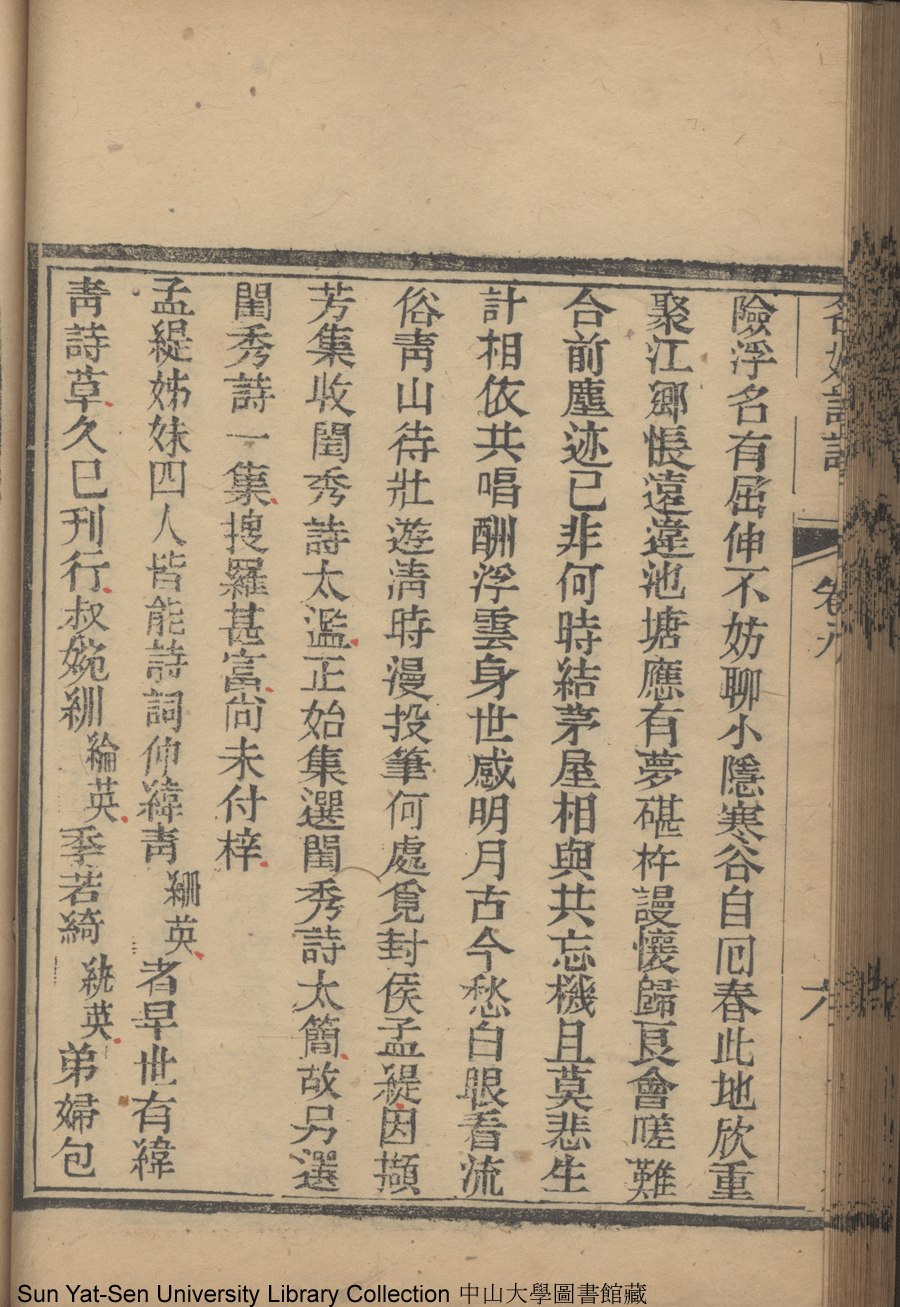 名媛詩話 卷八 六
險浮名有屈伸不妨聊小隱寒谷自囘春此地欣重
聚江鄉悵遠違池塘應有夢碪杵謾懷歸良會嗟難
合前塵迹已非何時結茅屋相與共忘機且莫悲生
計相依共唱酬浮雲身世感明月古今愁白眼看流
俗靑山待壯遊淸時漫投筆何處覓封侯孟緹因擷
芳集收閨秀詩太濫正始集選閨秀詩太簡故另選
閨秀詩一集搜羅甚富尙未付梓
孟緹姊妹四人皆能詩詞仲緯靑䌨英者早世有緯
靑詩草久已刋行叔婉紃綸英季若綺紈英弟婦包
Sun Yat-Sen University Library Collection 中山大學圖書館藏